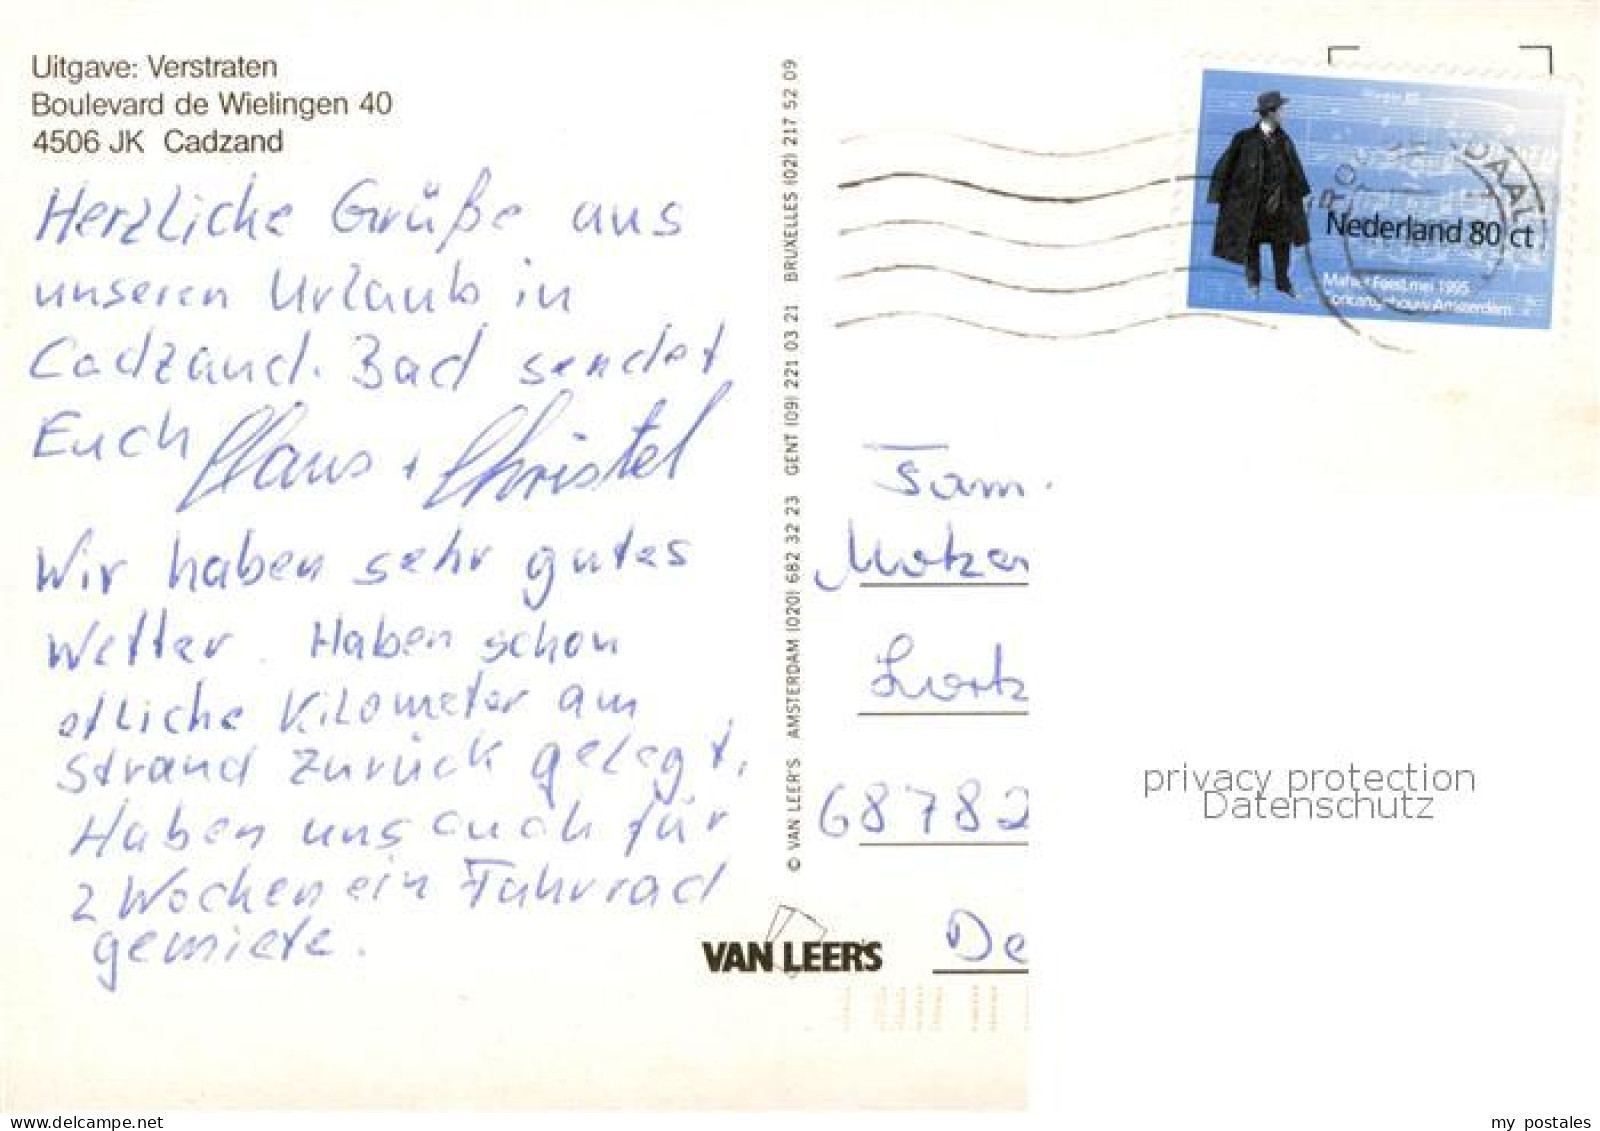 Uitgave: Verstraten
Boulevard de Wielingen 40
4506 JK Cadzand
Herzliche Grüße aus
unseren Urlaub in
Cadzand. Bad sendet
Euch Claus + Christel
Wir haben sehr gutes
Wetter. Haben schon
etliche Kilometer am
Strand zurück gelegt.
Haben uns auch für
2 Wochen ein Fahrrad
gemiete.
© VAN LEER'S AMSTERDAM (020) 682 32 23 GENT (09) 221 03 21 BRUXELLES (02) 217 52 09
VAN LEER'S
Nederland 80 ct
Mahler Feest mei 1995
Concertgebouw Amsterdam
Fam.
68782
De
privacy protection
Datenschutz
www.delcampe.net
my_postales